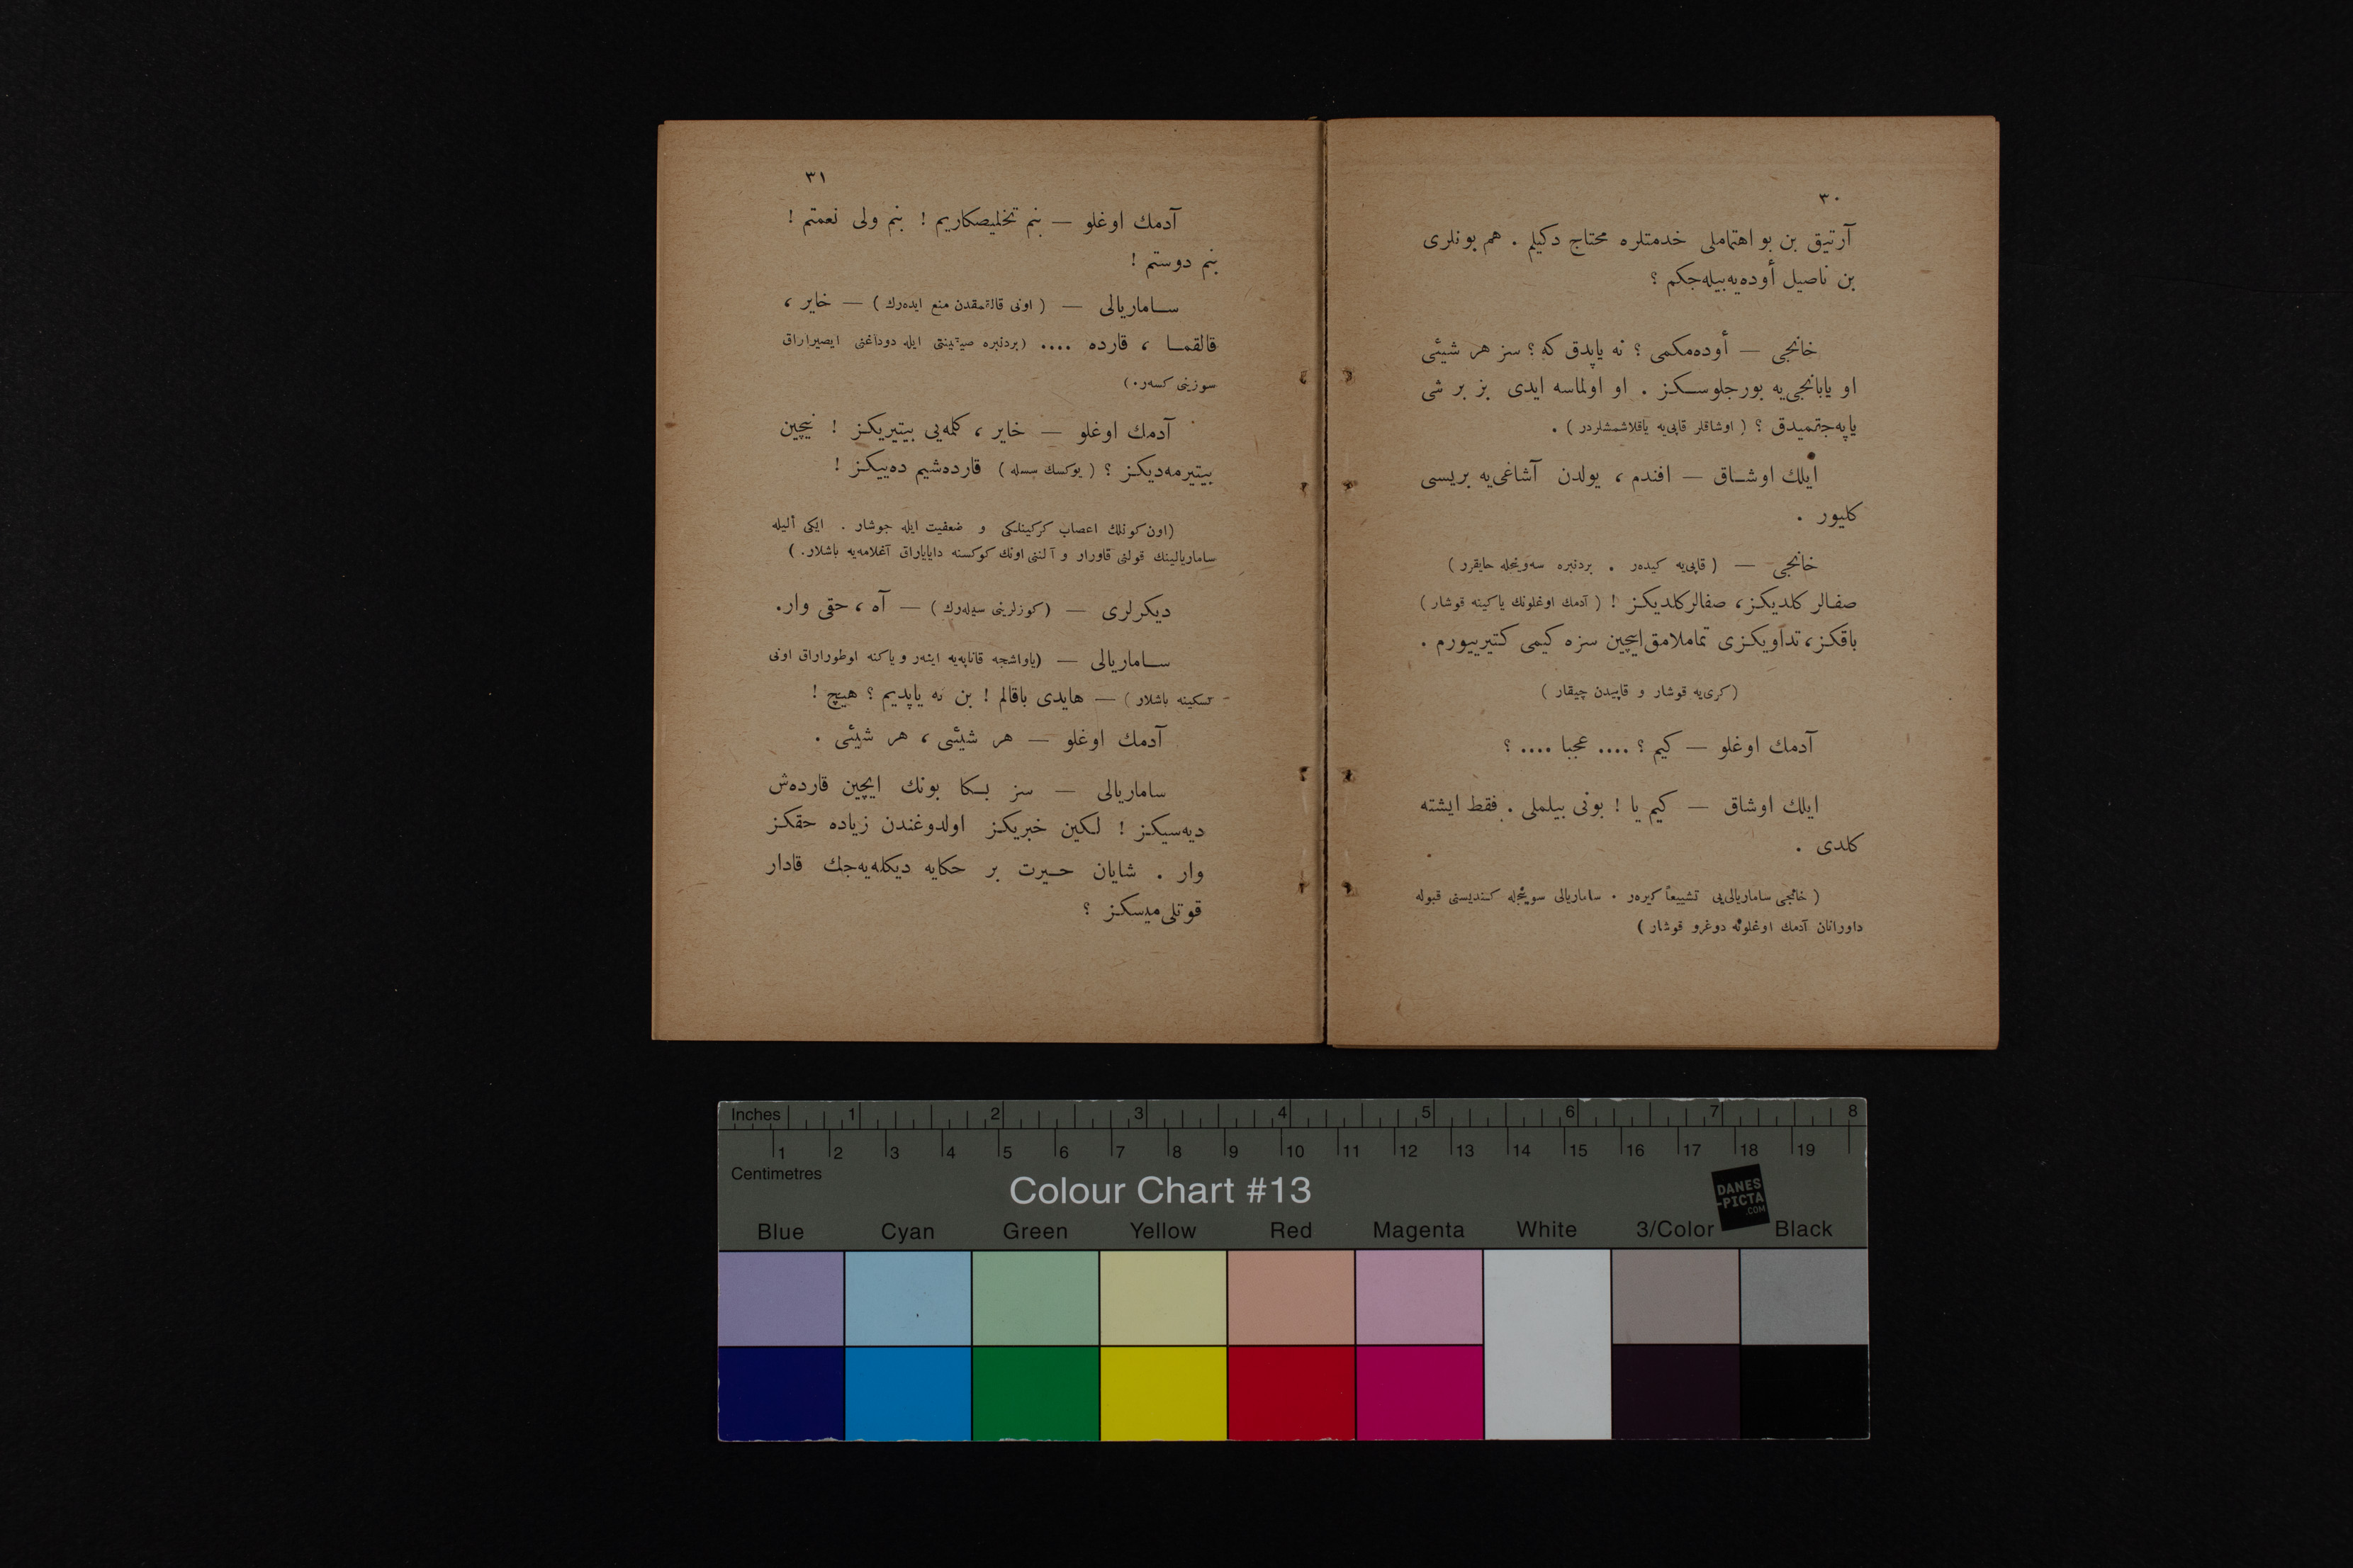 ٣٠
آرتيق بن بو اهتماملى خدمتلره محتاج دكيلم . هم بونلرى
بن ناصيل أوده‌يه‌بيله‌جكم ؟
خانجى — أوده‌مكمى ؟ نه ياپدق كه ؟ سز هر شيئى
او يابانجى‌يه بورجلوسكز . او اولماسه ايدى بز بر شى
ياپه‌جقميدق ؟ ( اوشاقلر قاپى‌يه ياقلاشمشلردر ) .
ايلك اوشاق — افندم ، يولدن آشاغى‌يه بريسى
كليور .
خانجى — ( قاپى‌يه كيده‌ر . بردنبره سه‌وينجله حايقرر )
صفالر كلديكز، صفالر كلديكز ! ( آدمك اوغلونك ياكينه قوشار )
باقكز، تداويكزى تماملامق ايچين سزه كيمى كتيرييورم .
( كرى‌يه قوشار و قاپيدن چيقار )
آدمك اوغلو — كيم ؟ .... عجبا .... ؟
ايلك اوشاق — كيم يا ! بونى بيلملى . فقط ايشته
كلدى .
( خانجى ساماريالى‌يى تشييعاً كيره‌ر . ساماريالى سوينجله كنديسنى قبوله
داورانان آدمك اوغلونه دوغرو قوشار )
٣١
آدمك اوغلو — بنم تخليصكاريم ! بنم ولى نعمتم !
بنم دوستم !
ساماريالى — ( اونى قالقمقدن منع ايده‌رك ) — خاير ،
قالقما ، قارده .... ( بردنبره صيقينتى ايله دوداغنى ايصيراراق
سوزينى كسه‌ر . )
آدمك اوغلو — خاير ، كلمه‌يى بيتيريكز ! نيچين
بيتيرمه‌ديكز ؟ ( يوكسك سسله ) قارده‌شيم ده‌ييكز !
( اون كونلك اعصاب كركينلكى و ضعفيت ايله جوشار . ايكى أليله
ساماريالينك قولنى قاورار و آلننى اونك كوكسنه داياياراق آغلامه‌يه باشلار . )
ديكرلرى — ( كوزلرينى سيله‌رك ) — آه ، حقى وار .
ساماريالى — ( ياواشجه قاناپه‌يه اينه‌ر و ياكنه اوطوراراق اونى
تسكينه باشلار ) — هايدى باقالم ! بن نه ياپديم ؟ هيچ !
آدمك اوغلو — هر شيئى ، هر شيئى .
ساماريالى — سز بكا بونك ايچين قارده‌ش
ديه‌سيكز ! لكين خبريكز اولدوغندن زياده حقكز
وار . شايان حيرت بر حكايه ديكله‌يه‌جك قادار
قوتلى‌ميسكز ؟
Inches 1 2 3 4 5 6 7 8
1 2 3 4 5 6 7 8 9 10 11 12 13 14 15 16 17 18 19
Centimetres
Colour Chart #13
DANES
-PICTA
.COM
Blue Cyan Green Yellow Red Magenta White 3/Color Black